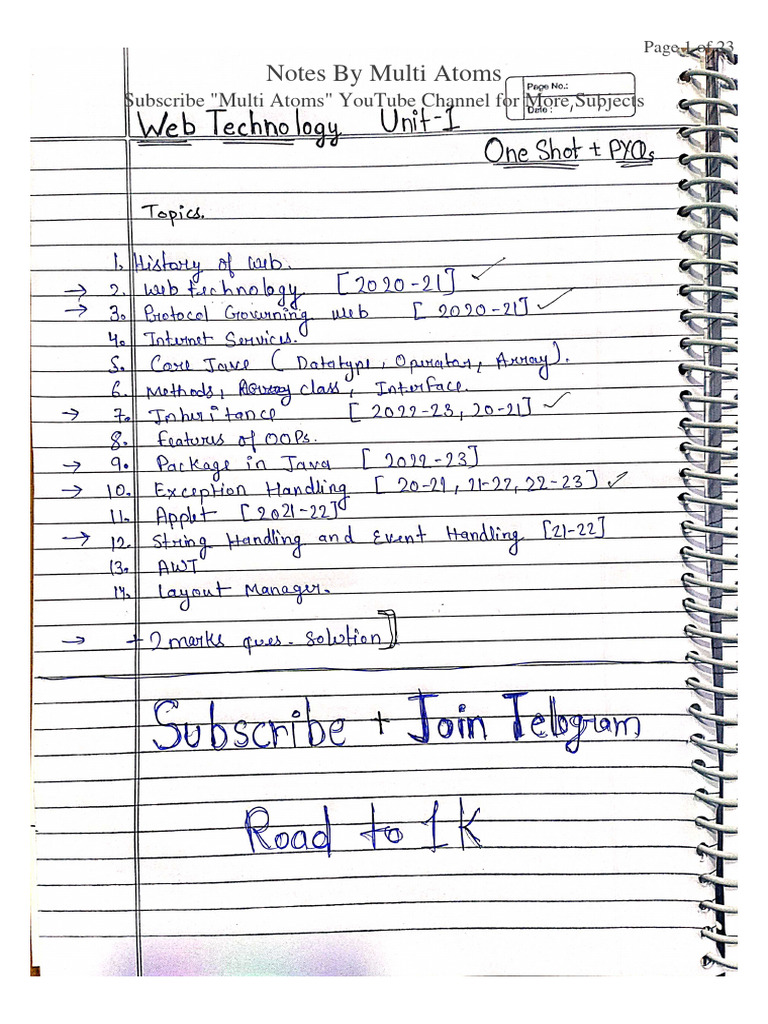 Page 1 of 23
Notes By Multi Atoms
Page No.:
Subscribe "Multi Atoms" YouTube Channel for More Subjects
Date :
Web Technology Unit-I
One Shot + PYQs
Topics.
1. History of web.
→ 2. web technology [2020-21] ✓
→ 3. Protocol Governing web [2020-21] ✓
4. Internet Services.
5. Core Java ( Datatype, Operator, Array).
6. Methods, class, Interface.
→ 7. Inheritance [2022-23, 20-21] ✓
8. features of OOPs.
→ 9. Package in Java [2022-23]
→ 10. Exception Handling [20-21, 21-22, 22-23] ✓
11. Applet [2021-22]
→ 12. String Handling and Event Handling [21-22]
13. AWT
14. Layout Manager.
→ + 2 marks ques. solution]
Subscribe + Join Telegram
Road to 1K